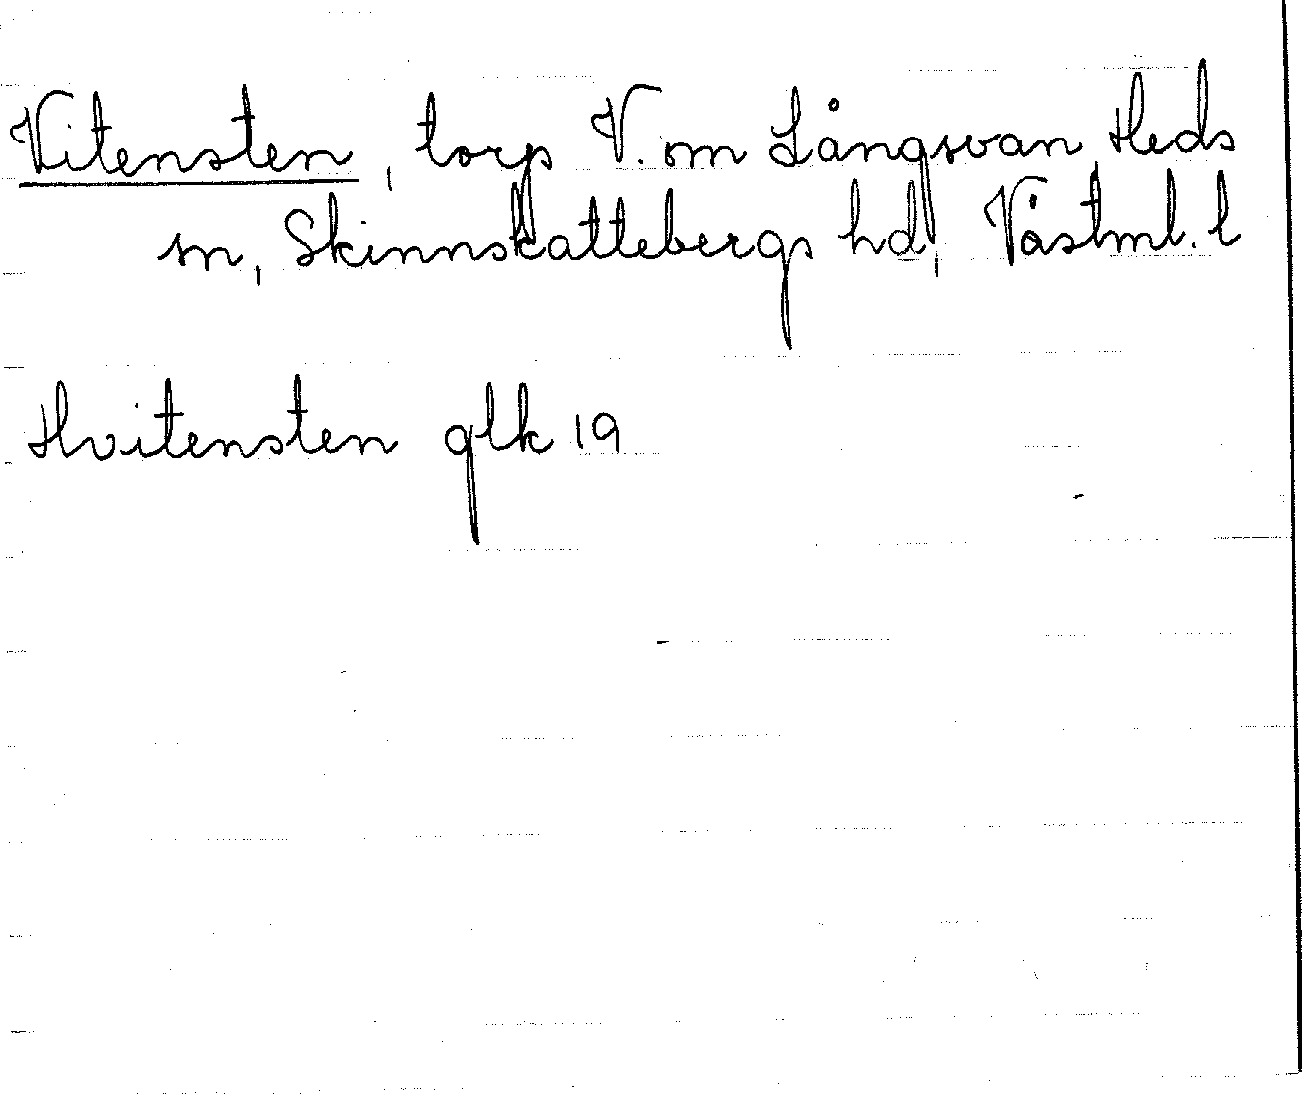 Vitensten, torp V. om Långsvan Heds
sn, Skinnskattebergs hd, Västml. l
Hvitensten glk 19